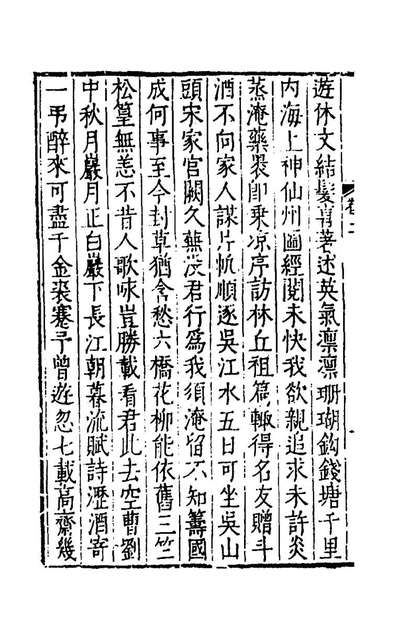 遊休文結髮喜著述英氣凛凛珊瑚鈎錢塘千里
内海上神仙州圖經閱未快我欲親追求未許炎
蒸淹藥裝即乗凉亭訪林丘祖篇輙得名友贈斗
酒不向家人謀片帆順逐吳江水五日可坐吳山
頭宋家宮闕久蕪没君行爲我須淹留不知籌國
成何事至今封草猶含愁六橋花柳能依舊三竺
松篁無恙不昔人歌咏豈勝載看君此去空曹劉
中秋月巖月正白巖下長江朝暮流賦詩瀝酒寄
一弔醉來可盡千金裘蹇予曾遊忽七載高齋幾
卷二